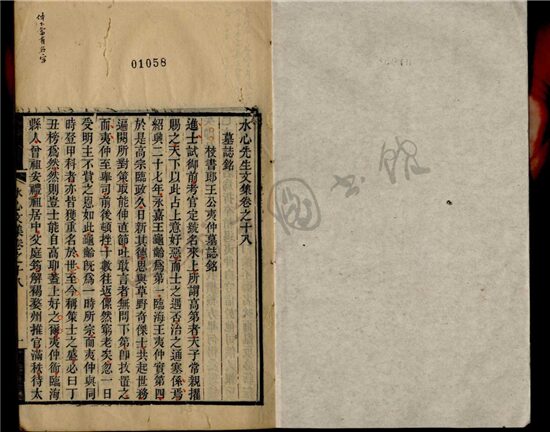 01058
水心先生文集卷之十八
墓誌銘
校書郎王公夷仲墓誌銘
進士試御前考官定號名來上所謂高第者天子常親擢
賜之天下以此占上意好惡而士之遇否治之通塞係焉
紹興二十七年永嘉王龜齡爲第一臨海王夷仲實第四
於是高宗臨政久日新其德思與草野奇傑士共起世務
遍閱所對策取能伸直節吐敢言者無問下第卽拔置之
而夷仲至舉司前後頓挫十數往返傫然窮老矣忽一日
受明主不貲之恩如此龜齡旣爲一時所宗而夷仲與同
時登甲科者亦皆獲重名於世至今稱策士之盛必曰丁
丑榜爲然然則豈士能自高聊蓋上好之爾夷仲衜臨海
縣人曾祖安禮祖居中父庭筠解褐婺州推官滿秩待太
水心文集卷之十八
一
圖書館